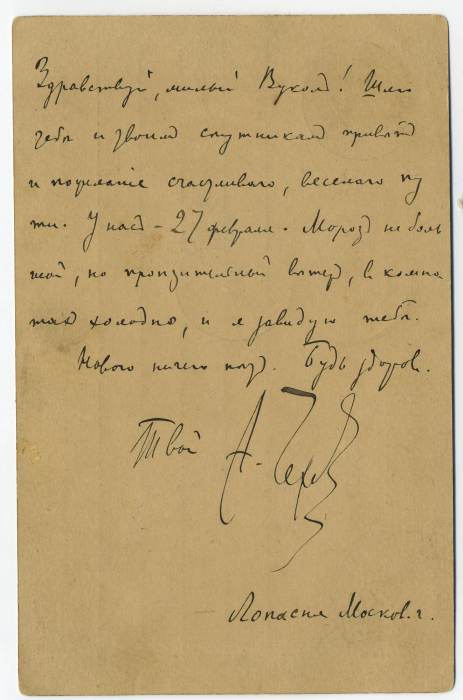 Здравствуй, милый Вуколъ! Шлю
тебѣ и твоимъ спутникамъ привѣтъ
и пожеланіе счастливаго, веселаго пу
ти. У насъ – 27 февраля. Морозъ не боль
шой, но пронзительный вѣтеръ, въ комна
тахъ холодно, и я завидую тебѣ.
Нового ничего нѣтъ. Будь здоров.
Твой А. Чехов
Лопасня Москов. г.